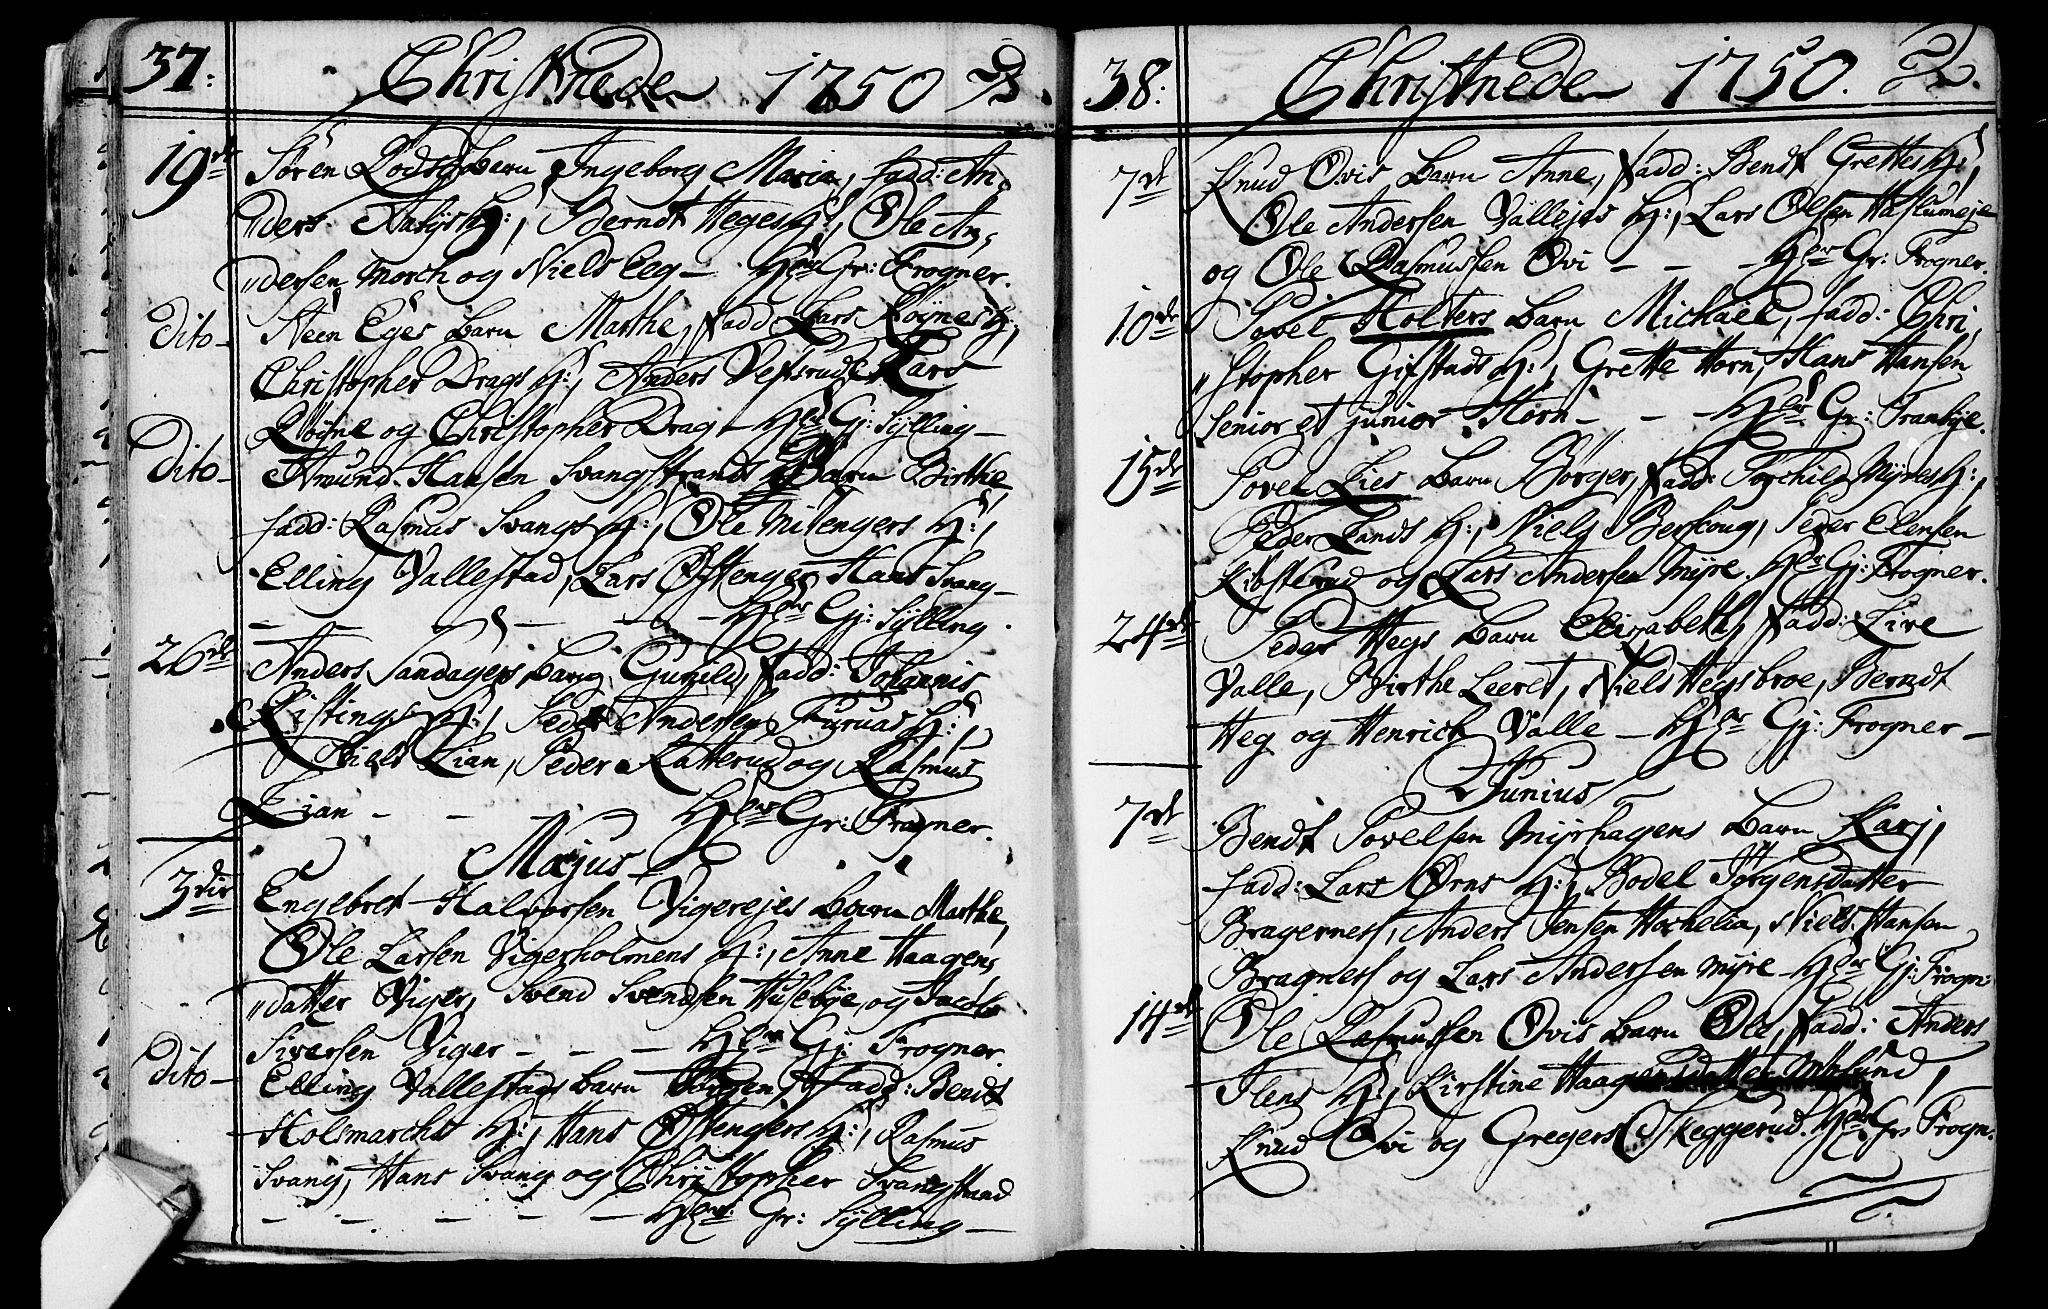 37: Christnede 1750
19de Søren Rødsg Barn Ingeborg Maria, fadd: An,
ders H:, Berndt Heges H:, Ole An,
"dersen Morch og Niels Eeg — Hær Gr: Frogner.
Dito — Steen Eges Barn Marthe, fadd: Lars Røÿnes H:,
Christopher Drags H:, Anders Lars
Røÿne og Christopher Drag — Hær Gj: Sÿlling —
Dito — Amund Hansen Svangstrands Barn Birthe
fadd: Rasmus Svangs H:, Ole Mitengers H:,
Elling Vallestad, Lars Østenge, Hans Svang —
— — — — Hær Gj: Sÿlling.
26de Anders Sandagers Barn Gunild, fadd: Johannis
Kistings H:, Peder Andersen Furuas H:,
Niels Lian, Peder Ratterud og Rasmus
Lian — — — Hær Gr: Frogner.
Majus
3die Engebret Halvorsen Vigerejes Barn Marthe,
Ole Larsen Vigerholmens H:, Anne Haagens,
"datter Viger, Svend Svendsen Husebÿe, og Jacob
Siversen Viger — — — Hær Gj: Frogner.
Dito — Elling Vallestads Barn fadd: Bendt
Holsmarchs H:, Hans Østengers H:, Rasmus
Svang, Hans Svang og Christopher Svangstrand
— — — — — Hær: Gr: Sÿlling —
38: Christnede 1750.
7de Knud Ovis Barn Anne, fadd: Bendt Grettes H:,
Ole Andersen Vallejes H:, Lars Olsen Haslumeje
og Ole Rasmussen Ovi — — — Hær Gr: Frogner.
10de Povel Holters Barn Michael, fadd: Chri,
"stopher Gifstads H:, Grette Horn, Hans Hansen
Senior et junior Horn — — — Hær Gr: Tranbÿe.
15de Poven Lies Barn Børger, fadd: Torchild Mÿres H:,
Peder Lands H:, Niels Berskoug, Peder Elensen
Kibsterud og Lars Andersen Mÿre. Hær Gj: Frogner.
24de Peder Hegs Barn Elizabeth, fadd: Live
Valle, Birthe Leeret, Niels Hegsbroe, Berndt
Heg og Henrich Valle — Hær Gj: Frogner —
Junius
7de Bendt Povelsen Mÿrhagens Barn Karj,
fadd: Lars Ørns H:, Bodel Jørgensdatter
Bragerness, Anders Jensen Hochelia, Niels Hansen
Bragness og Lars Andersen Mÿre — Hær Gj: Frogn:
14de Ole Rasmussen Ovis Barn Ole, fadd: Anders
Tlens H:, Kirstine Haagensdatter
Knud Ovi og Gregers Skeggerud. Hær Gr: Frogn.